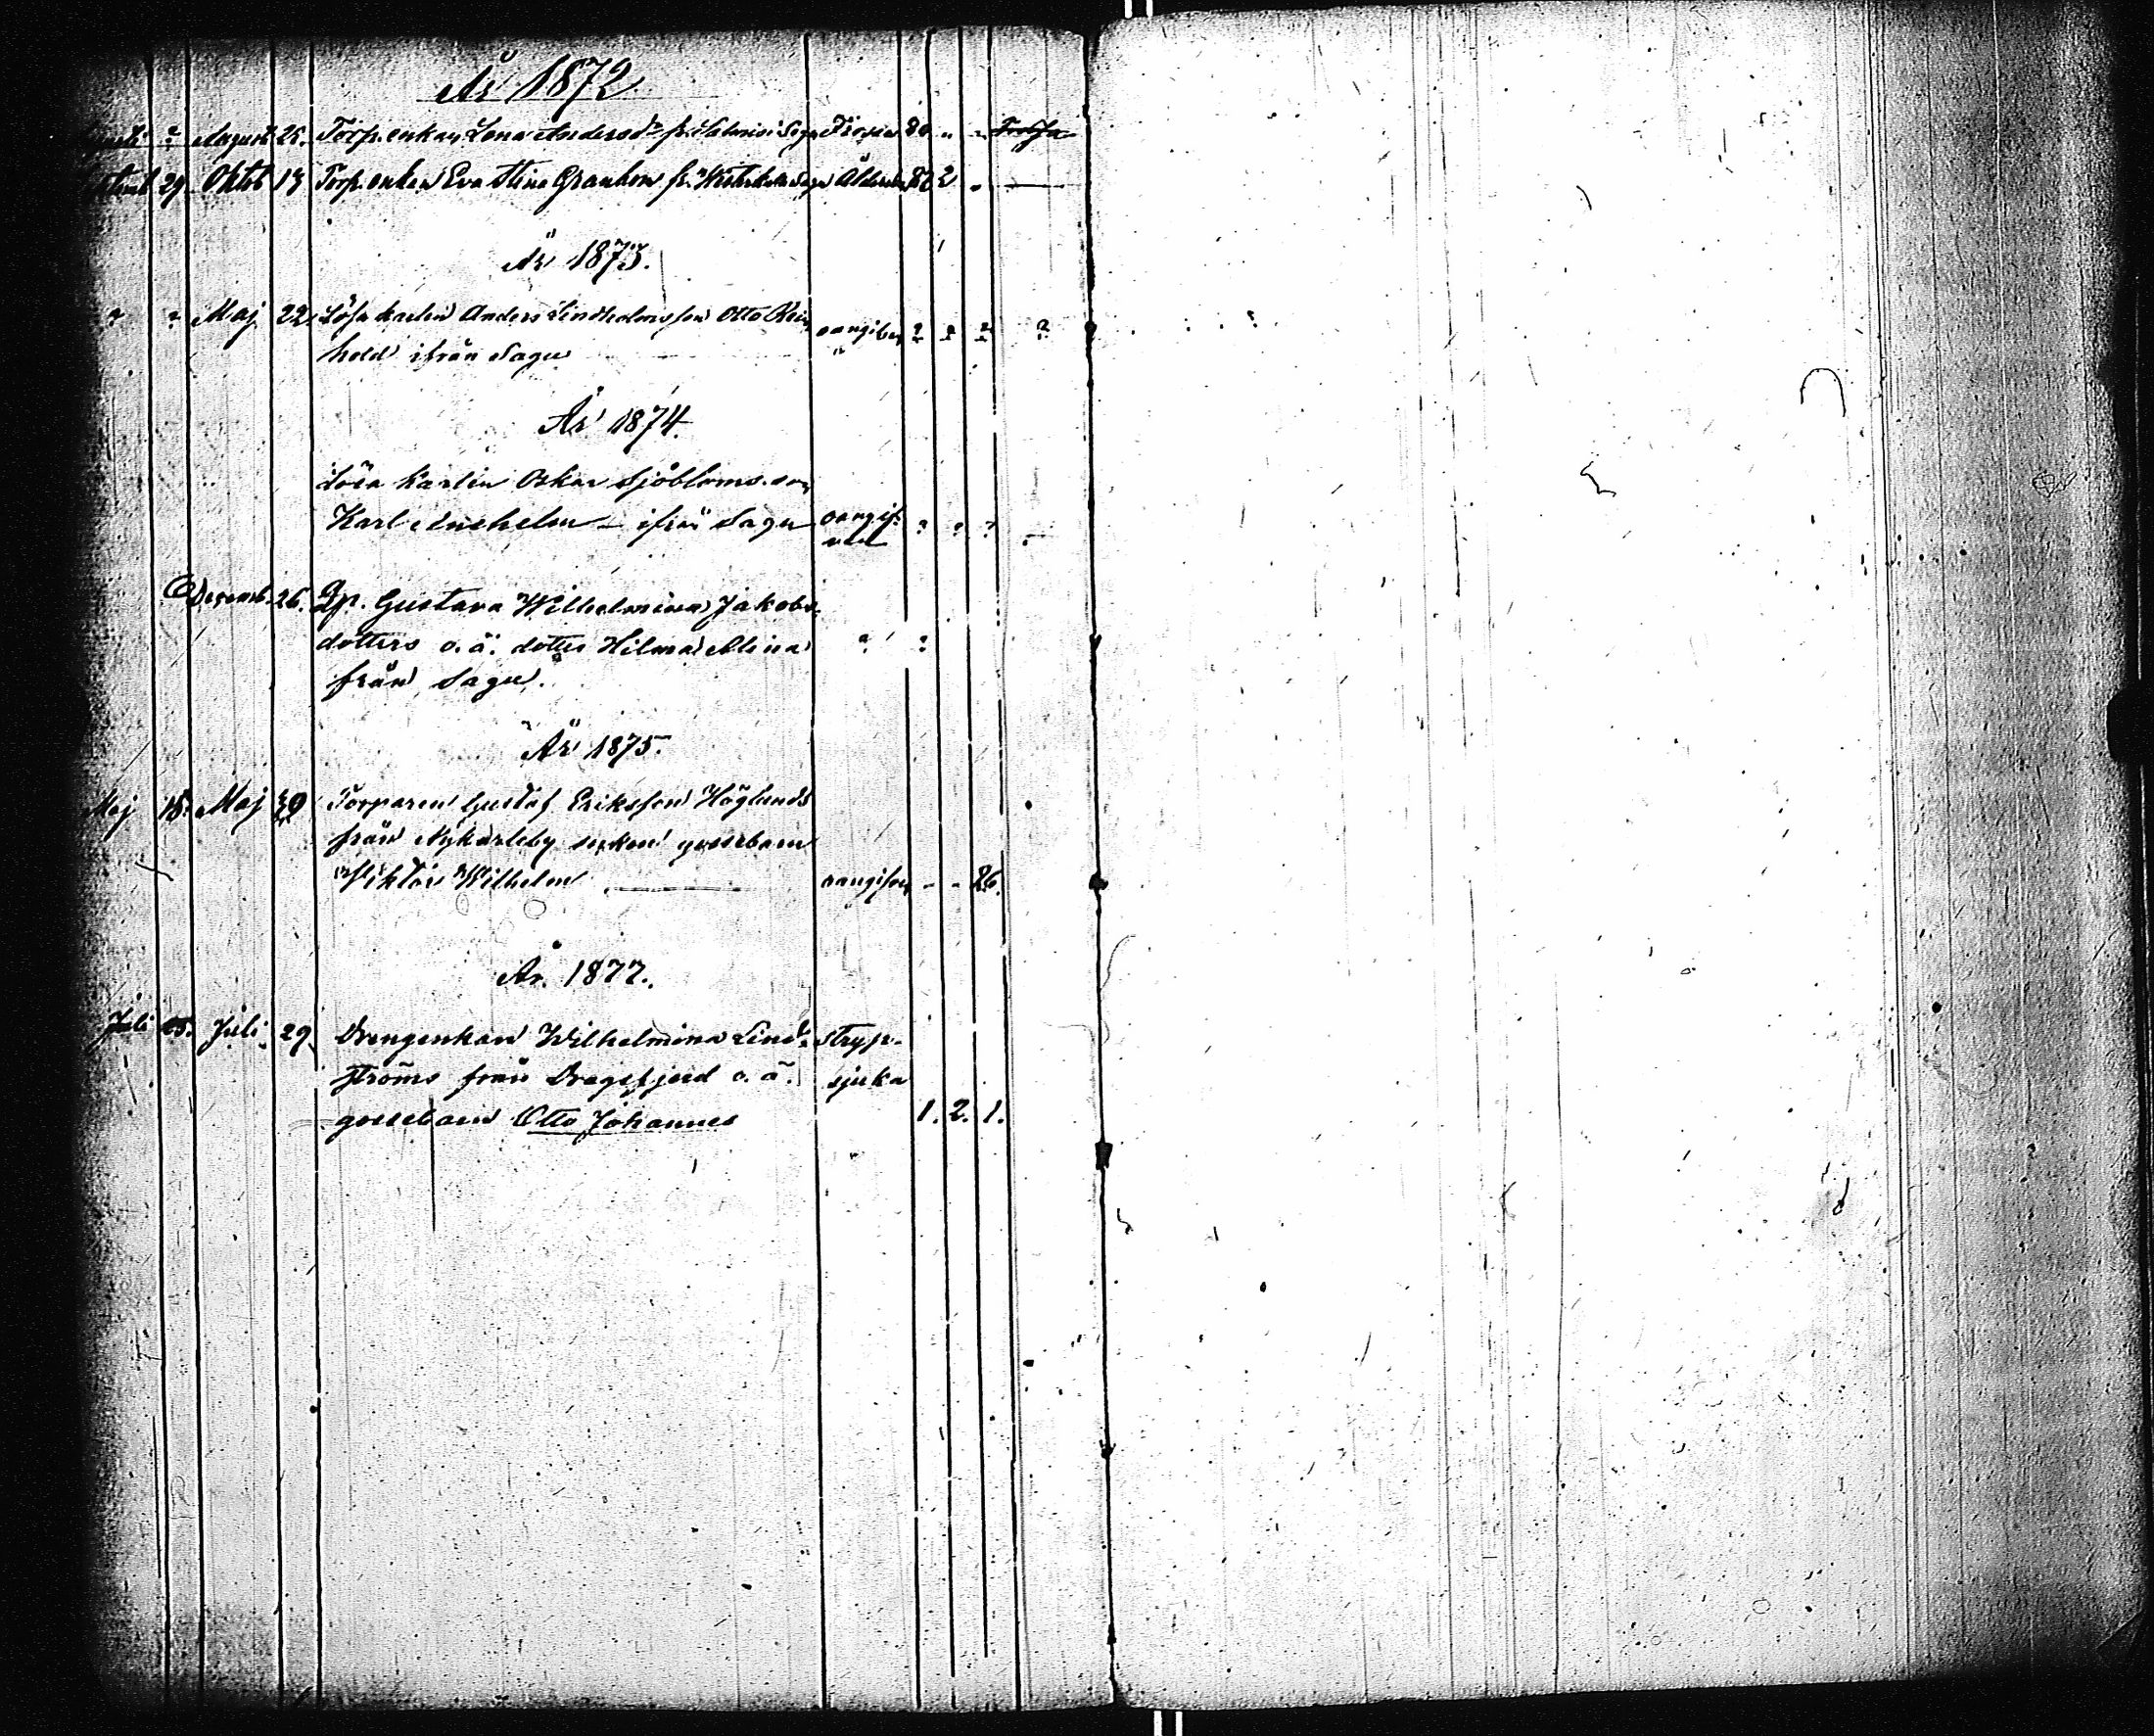 År 1872
? August 25. Torp.enkan Lena Andersd:r fr. i Sagu 80 " "
29 Oktob 13 Torp.enkan Eva Stina Granbom fr. Sagu Ålderdom 82 2 "
År 1873.
? ? Maj 22 Lösa karlen Anders Lindholms son Otto Rein
hold ifrån Sagu oangifven ? ? ? ?
År 1874.
Lösa karlen Oskar Sjöbloms son
Karl Anshelm – ifrån Sagu oangif-
vet ? ? ?
Decemb. 26. Qp. Gustava Wilhelmina Jakobs
dotters o.ä. dotter Hilma Alina ? ?
från Sagu.
År 1875.
Maj 18. Maj 30 Torparen Gustaf Eriksson Höglunds
från Nykarleby socken gossebarn
Viktor Wilhelm oangifven - - 26.
År. 1877.
Juli Juli 29. Drengenkan Wilhelmina Lind- Stryp-
ströms från Dragsfjerd o.ä. sjuka
gossebarn Otto Johannes 1. 2. 1.